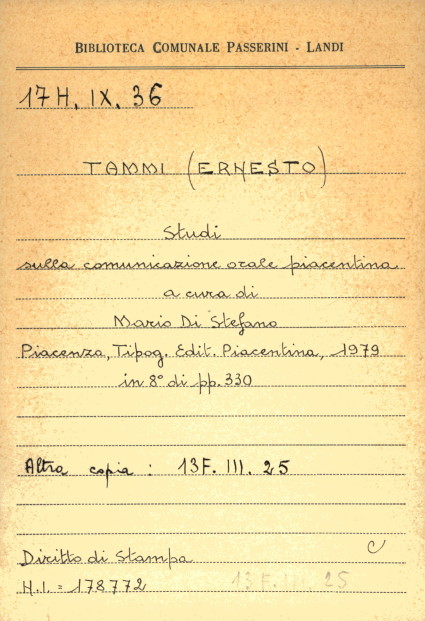 BIBLIOTECA COMUNALE PASSERINI - LANDI
17H. IX. 36
TAMMI (ERNESTO)
Studi
sulla comunicazione orale piacentina
a cura di
Mario Di Stefano
Piacenza, Tipog. Edit. Piacentina, 1979
in 8° di pp. 330
Altra copia : 13F. III. 25
Diritto di Stampa
C
H.I. = 178772 13 F. III. 25